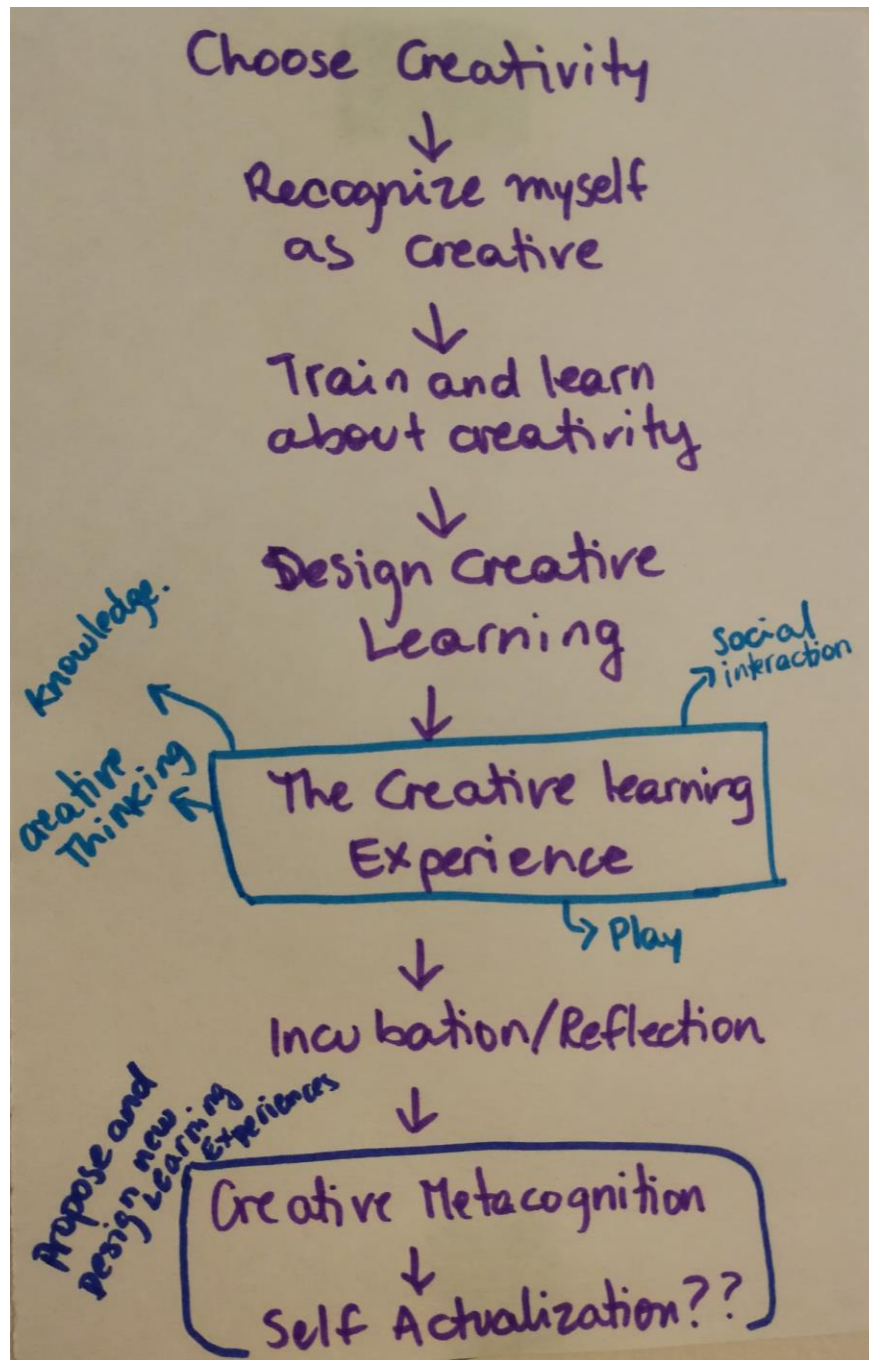 Choose Creativity
↓
Recognize myself
as creative
↓
Train and learn
about creativity
↓
Design Creative
Learning
↓
knowledge.
Creative
Thinking
social
interaction
The Creative learning
Experience
Play
↓
Incubation/Reflection
↓
Propose and
Design new
Learning
Experiences
Creative Metacognition
↓
Self Actualization??